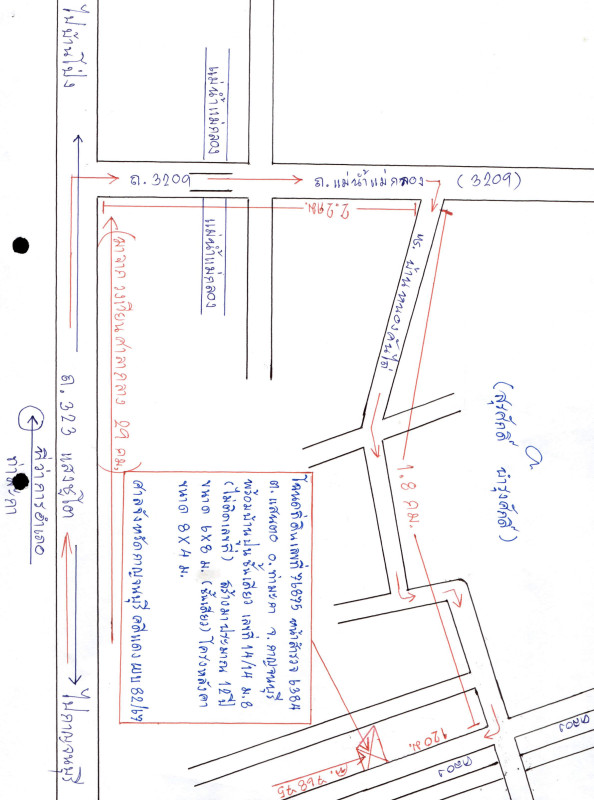 ไปบ้านโป่ง
แม่น้ำแม่กลอง
แม่น้ำแม่กลอง
ถ. 3209
ถ. แม่น้ำแม่กลอง (3209)
2.2 กม.
ทร. บ้านหนองตาไก่
1.8 กม.
(มาจากวงเวียนศาลากลาง 29 กม.)
ถ. 323 แสงชูโต
ที่ว่าการอำเภอ
ท่ามะกา
ไปกาญจนบุรี
โฉนดที่ดินเลขที่ 76875 หน้าสำรวจ 6384
ต.แสนตอ อ.ท่ามะกา จ.กาญจนบุรี
พร้อมบ้านปูนชั้นเดียว เลขที่ 14/14 ม.8
(ไม่ติดเลขที่) สร้างมาประมาณ 12 ปี
ขนาด 6X8 ม. (ชั้นเดียว) โครงหลังคา
ขนาด 8X4 ม.
ศาลจังหวัดกาญจนบุรี คดีแดง ผบ 82/67
120 ม.
ฉ. 76875
คลอง
คลอง